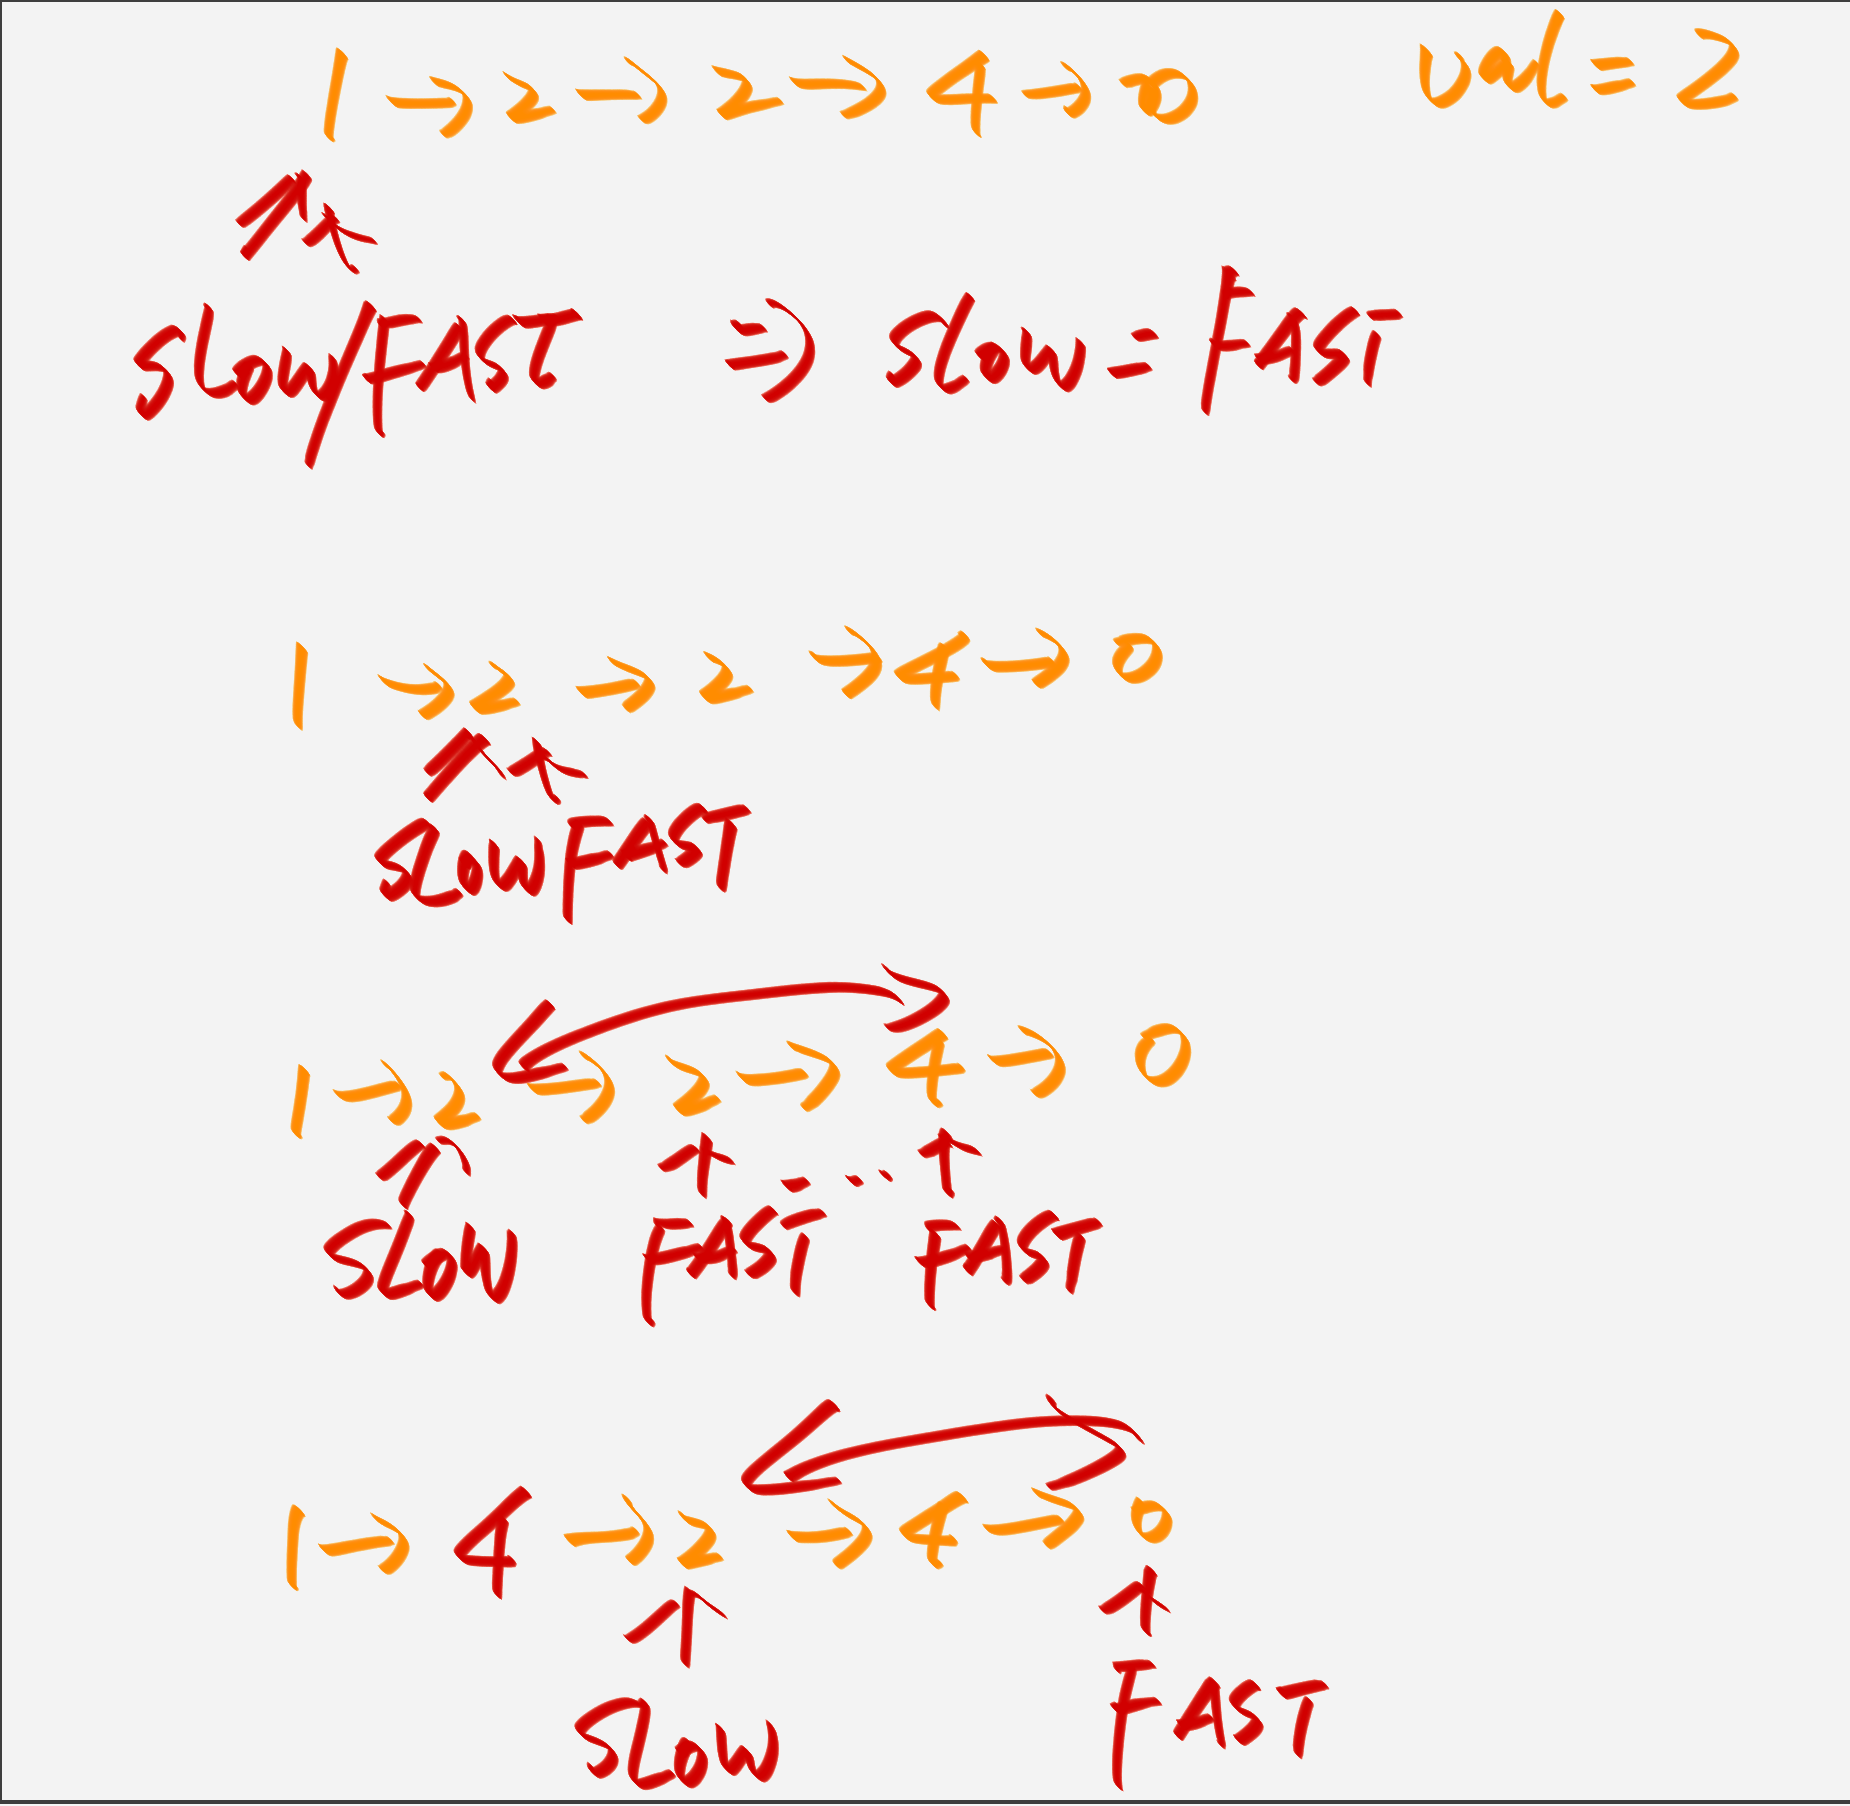 1 → 2 → 2 → 4 → 0 val = 2
slow/FAST ⇒ slow = FAST
1 → 2 → 2 → 4 → 0
SLOW FAST
1 → 2 → 2 → 4 → 0
SLOW FAST ... FAST
1 → 4 → 2 → 4 → 0
SLOW FAST